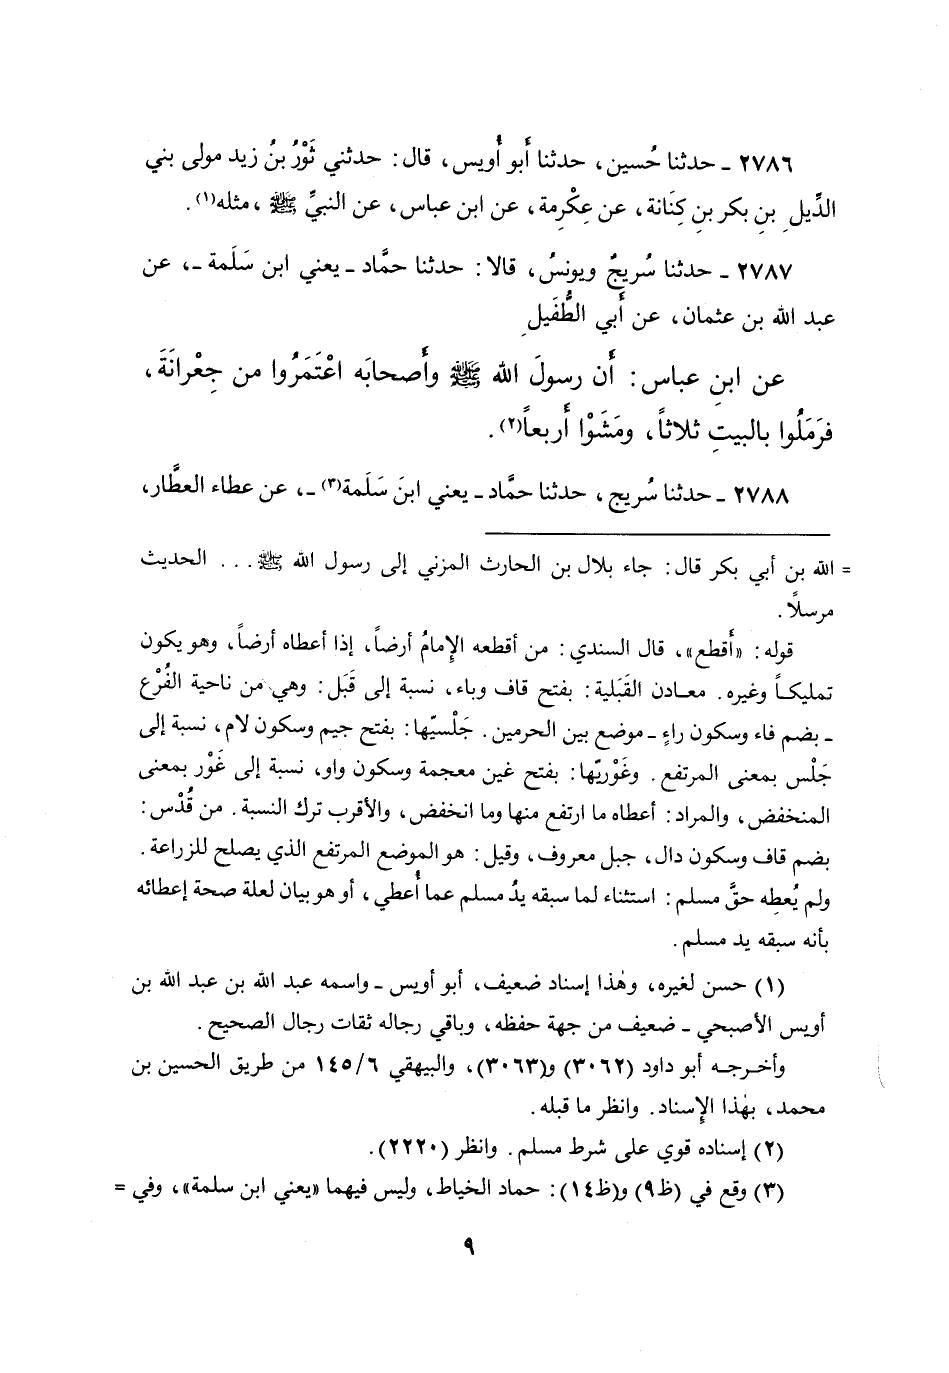 ٢٧٨٦ ـ حدثنا حُسين، حدثنا أَبو أُويس، قال: حدثني ثَوْرُ بنُ زيد مولى بني
الدِّيلِ بنِ بكر بنِ كِنَانة، عن عِكْرِمة، عن ابن عباس، عن النبيِّ ﷺ، مثله(١).
٢٧٨٧ ـ حدثنا سُريجٌ ويونسُ، قالا: حدثنا حمَّاد ـ يعني ابن سَلَمة ـ، عن
عبد الله بن عثمان، عن أَبي الطُّفَيلِ
عن ابنِ عباس: أَن رسولَ الله ﷺ وأَصحابَه اعْتَمَرُوا من جِعْرانَةَ،
فرَمَلُوا بالبيتِ ثلاثاً، ومَشَوْا أَربعاً(٢).
٢٧٨٨ ـ حدثنا سُريج، حدثنا حمَّاد ـ يعني ابنَ سَلَمة(٣) ـ، عن عطاء العطَّار،
= الله بن أبي بكر قال: جاء بلال بن الحارث المزني إلى رسول الله ﷺ... الحديث
مرسلاً.
قوله: «أَقطع»، قال السندي: من أقطعه الإِمامُ أرضاً، إذا أعطاه أرضاً، وهو يكون
تمليكاً وغيره. معادن القَبَلية: بفتح قاف وباء، نسبة إلى قَبَل: وهي من ناحية الفُرْع
ـ بضم فاء وسكون راءٍ ـ موضع بين الحرمين. جَلْسيّها: بفتح جيم وسكون لام، نسبة إلى
جَلْس بمعنى المرتفع. وغَوْريّها: بفتح غين معجمة وسكون واو، نسبة إلى غَوْر بمعنى
المنخفض، والمراد: أعطاه ما ارتفع منها وما انخفض، والأقرب ترك النسبة. من قُدْس:
بضم قاف وسكون دال، جبل معروف، وقيل: هو الموضع المرتفع الذي يصلح للزراعة.
ولم يُعطِه حقَّ مسلم: استثناء لما سبقه يدُ مسلم عما أُعطي، أو هو بيان لعلة صحة إعطائه
بأنه سبقه يد مسلم.
(١) حسن لغيره، وهٰذا إسناد ضعيف، أبو أويس ـ واسمه عبد الله بن عبد الله بن
أويس الأصبحي ـ ضعيف من جهة حفظه، وباقي رجاله ثقات رجال الصحيح.
وأخرجه أبو داود (٣٠٦٢) و(٣٠٦٣)، والبيهقي ١٤٥/٦ من طريق الحسين بن
محمد، بهٰذا الإِسناد. وانظر ما قبله.
(٢) إسناده قوي على شرط مسلم. وانظر (٢٢٢٠).
(٣) وقع في (ظ٩) و(ظ١٤): حماد الخياط، وليس فيهما «يعني ابن سلمة»، وفي =
٩